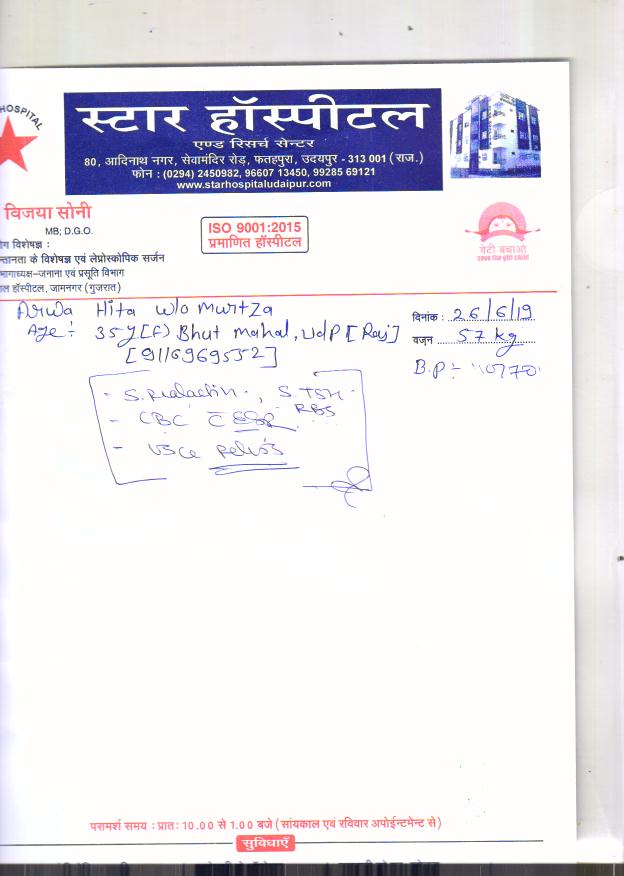 HOSPITAL
स्टार हॉस्पीटल
एण्ड रिसर्च सेन्टर
80, आदिनाथ नगर, सेवामंदिर रोड़, फतहपुरा, उदयपुर - 313 001 (राज.)
फोन : (0294) 2450982, 96607 13450, 99285 69121
www.starhospitaludaipur.com
विजया सोनी
MB; D.G.O.
ोग विशेषज्ञ :
न्तानता के विशेषज्ञ एवं लेप्रोस्कोपिक सर्जन
भागाध्यक्ष–जनाना एवं प्रसूति विभाग
ाल हॉस्पीटल, जामनगर (गुजरात)
ISO 9001:2015
प्रमाणित हॉस्पीटल
बेटी बचाओ
save the girl child
Arwa Hita w/o Murtza
Age :- 35y [F] Bhut Mahal, Udp [Raj]
[9116969552]
दिनांक : 26/6/19
वज़न 57 kg
B.P :-
- S. Prolactin , S. TSH
- CBC C RBS
- USG Pelvis
परामर्श समय : प्रातः 10.00 से 1.00 बजे (सांयकाल एवं रविवार अपोईन्टमेन्ट से)
सुविधाएँ